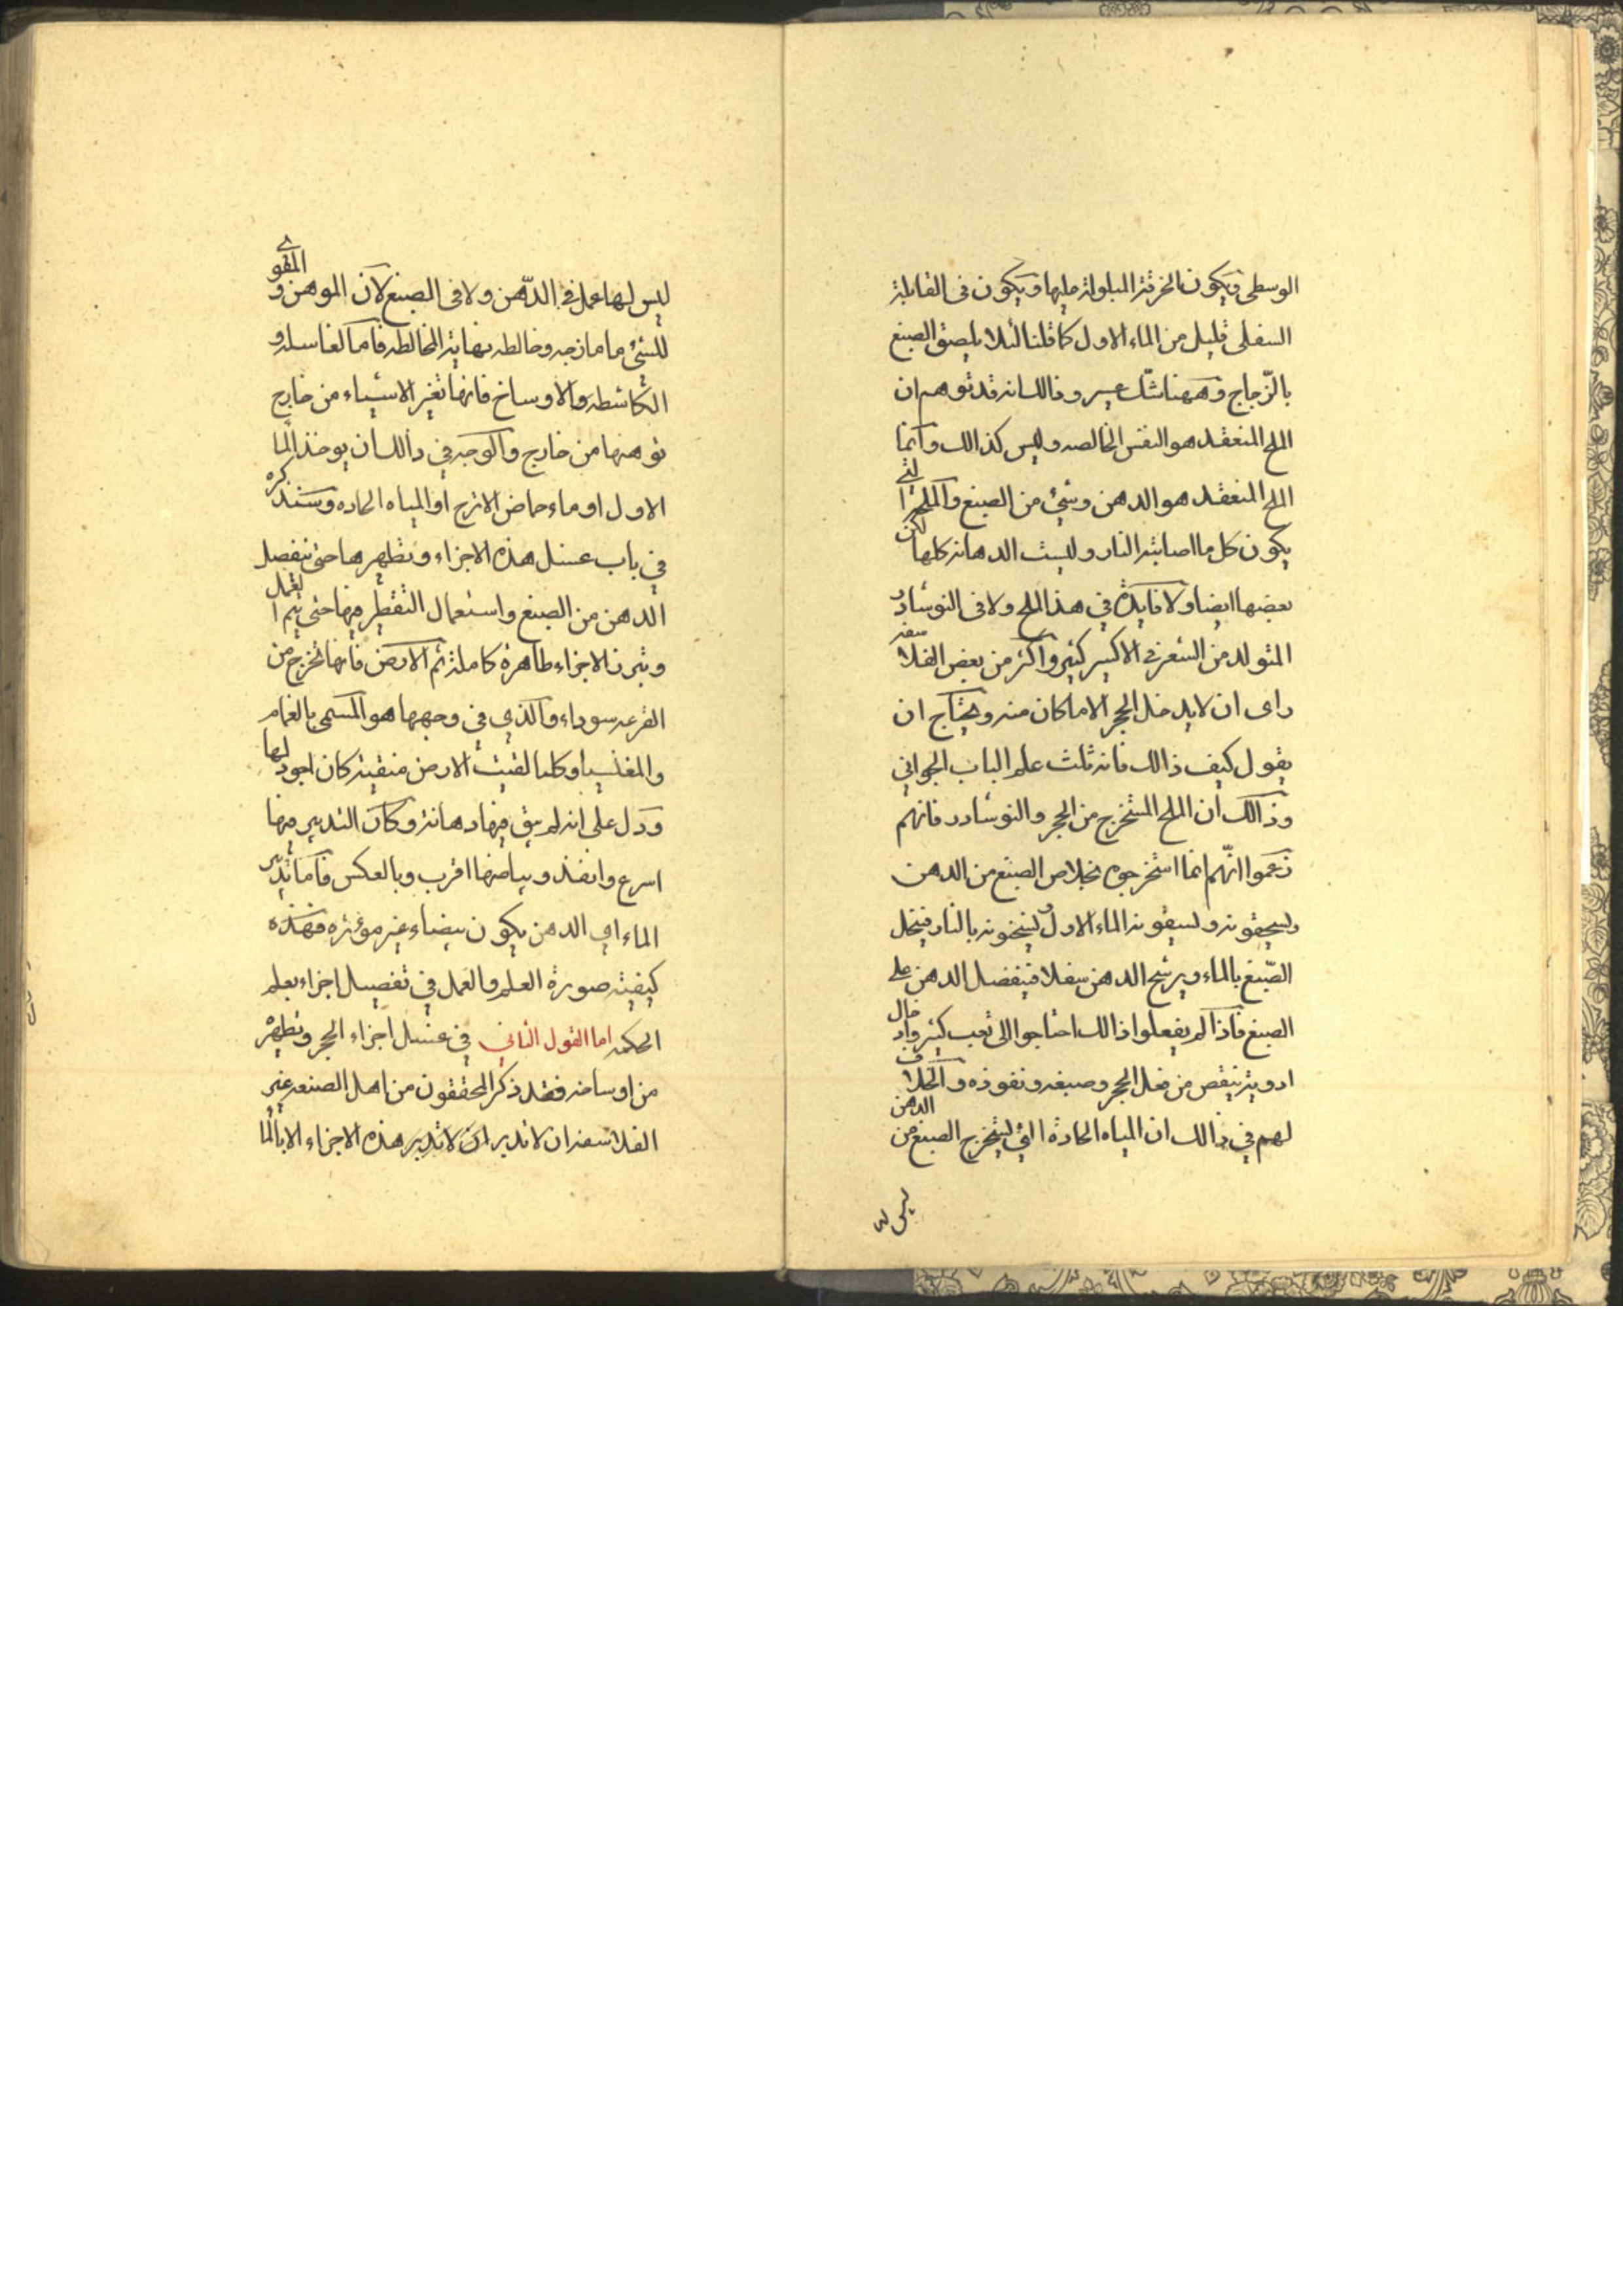 الوسطى ويكون الخرقة المبلولة عليها ويكون فى القابلة
السفلى قليل من الماء الاول كما قلنا لئلا يلصق الصبغ
بالزّجاج وههنا شكّ عسير وذالك انه قد توهم ان
الملح المنعقد هو النفس الخالصه وليس كذالك وانما
الملح المنعقد هو الدهن وشئ من الصبغ والملح التى
يكون كل ما اصابته النار وليست الدهانة كلها لكن
بعضها ايضا ولا فايدة في هذا الملح ولا فى النوشادر
المتولد من الشعر في الاكسير كثير واكثر من بعض الفلاسفه
راى ان لا يدخل الحجر الا ما كان منه ويحتاج ان
يقول كيف ذالك فانه ثلث علم الباب الجواني
وذالك ان الملح المستخرج من الحجر والنوشادر فانهم
زعموا انّهم انما استخرجوه بخلاص الصبغ من الدهن
ويسحقونه ويسقونه الماء الاول ويسخنونه بالنار فينحل
الصّبغ بالماء ويرشح الدهن سفلا فينفصل الدهن على
الصبغ فاذا لم يفعلوا ذالك احتاجوا الى تعب كثير وادخال
ادوية ينقص من فعل الحجر وصبغه ونفوذه والخلاف
لهم في ذالك ان المياه الحادة التي يستخرج الصبغ من الدهن
ليس
ليس لها عمل في الدّهن ولا فى الصبغ لان الموهن والمقوى
للشئ ما مازجه وخالطه نهاية المخالطه فاما الغاسله و
الكاشطه والاوساخ فانها تغير الاشياء من خارج
توهنها من خارج والوجه في ذالك ان يوخذ الما
الاول او ماء حماض الاترج او المياه الحاده وسنذكره
في باب غسل هذه الاجزاء وتطهيرها حتى ينفصل
الدهن من الصبغ واستعمال التقطير فيها حتى يتم العمل
وتبرن الاجزاء طاهرة كاملة ثم الارض فانها تخرج من
القرعه سوداء والذي في وجهها هو المسمى بالغمام
والمغنيسيا وكلما لقيت الارض منقية كان اجود لها
ودل على انه لم يبق فيها دهانة وكان التدبير فيها
اسرع وانفذ وبياضها اقرب وبالعكس فاما تدبير
الماء اي الدهن يكون بيضاء غير مؤثره فهذه
كيفية صورة العلم والعمل في تفصيل اجزاء بعلم
الحكمه اما القول الثاني في غسل اجزاء الحجر وتطهيره
من اوساخه فقد ذكر المحققون من اهل الصنعه غير
الفلاسفه ان لا تدبر ان لا تدبر هذه الاجزاء الا بالما